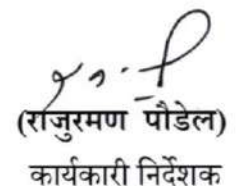 (राजुरमण पौडेल)
कार्यकारी निर्देशक